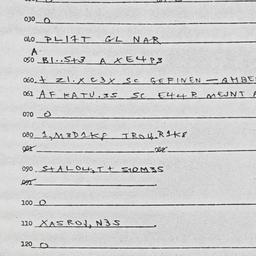 030 O
040 PLI7T GL NAR
A
050 BI..S+3 A XE4P3
060 + Z1.XC3X SC GEFINEN — AMBE
061 AF KATU.3S SC E44R MEJNT A
070 O
080 1,M3D1K8 TRO4.R1K8
090 S+ALO4,T+
100 O
110 XASROJ,N3S
120 O